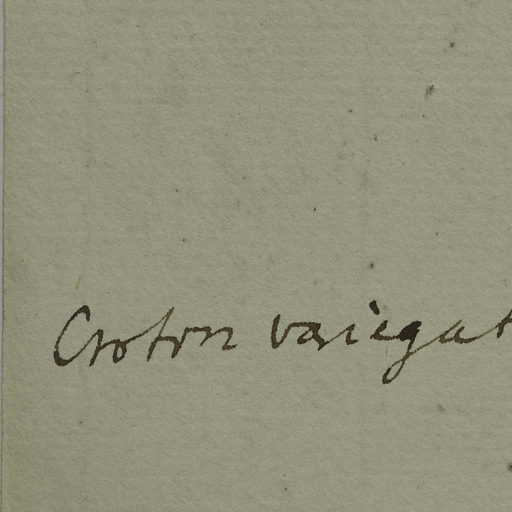 Croton variegat